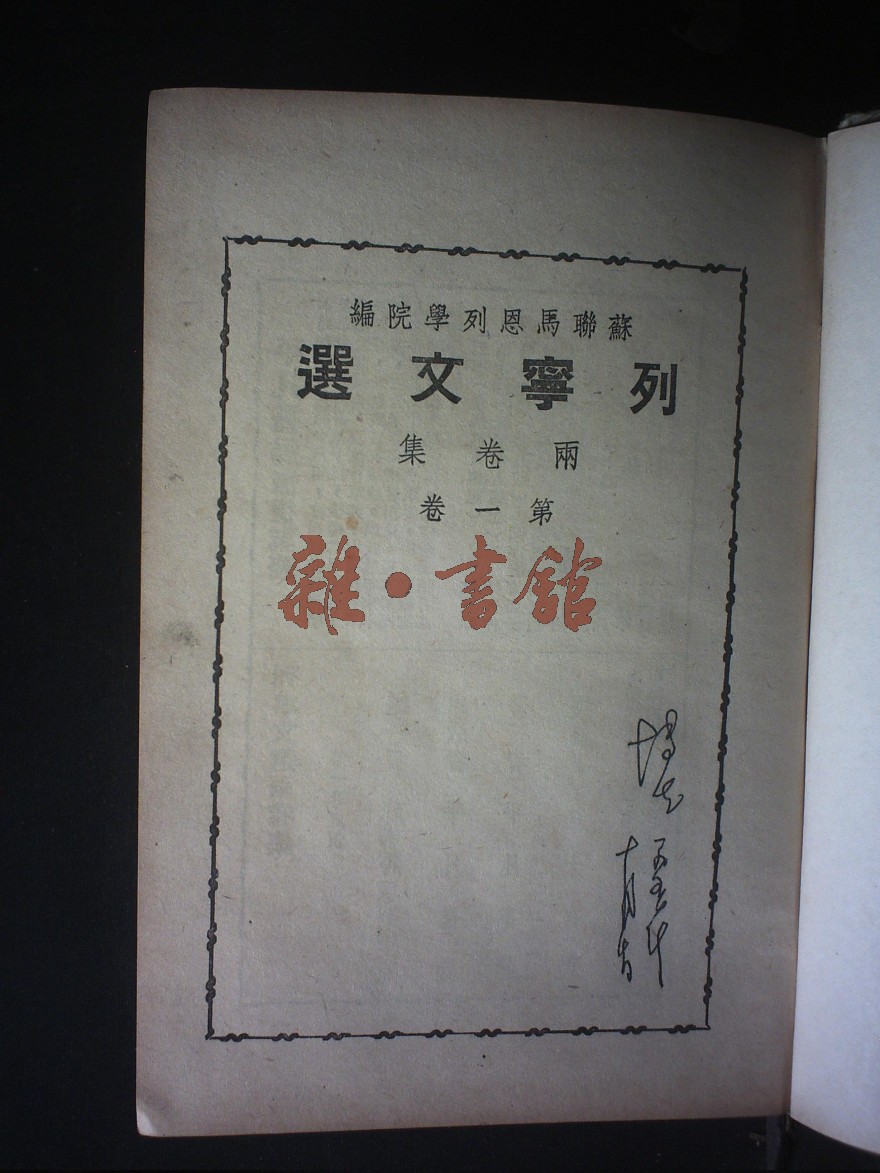 蘇聯馬恩列學院編
列寧文選
兩卷集
第一卷
雜·書館